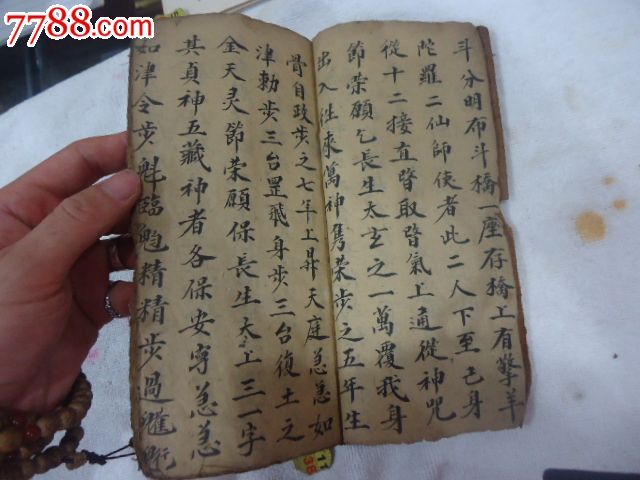 7788.com
斗分明布斗橋一座存橋上有擎羊
陀羅二仙師使者此二人下至己身
從十二接直皆取皆氣上通從神咒
節榮願乞長生太玄之一萬覆我身
出入往來萬神雋榮步之五年生
骨自政步之七年上昇天庭急急如
津勅步三台罡飛身步三台復土之
全天灵節荣願保長生太上三一字
其貞神五藏神者各保安寧急急
如津令步魁臨魁精精步過